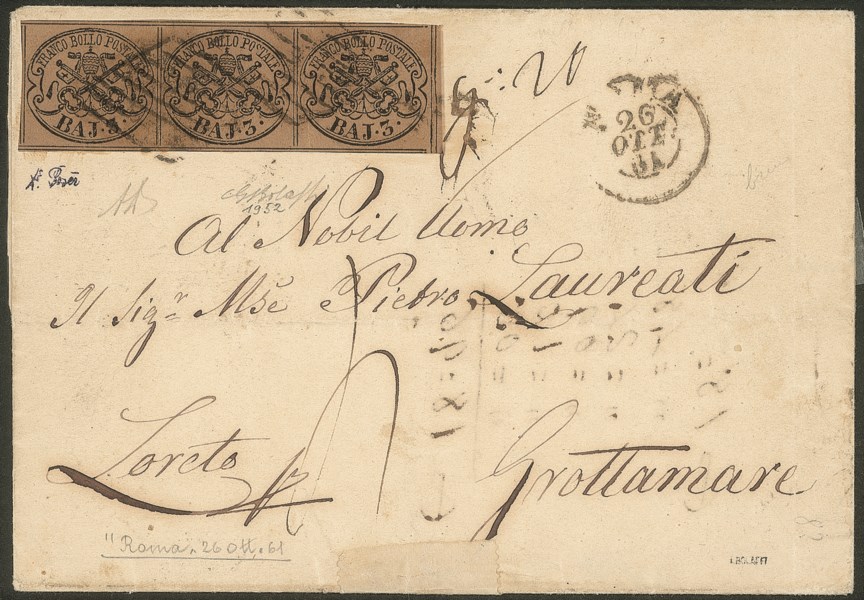 FRANCO BOLLO POSTALE FRANCO BOLLO POSTALE FRANCO BOLLO POSTALE
BAJ.3. BAJ.3. BAJ.3.
26
OTT
61
1952
Al Nobil Uomo
Il Sigr. Mse Pietro Laureati
Loreto Grottamare
"Roma. 26 Ott. 61